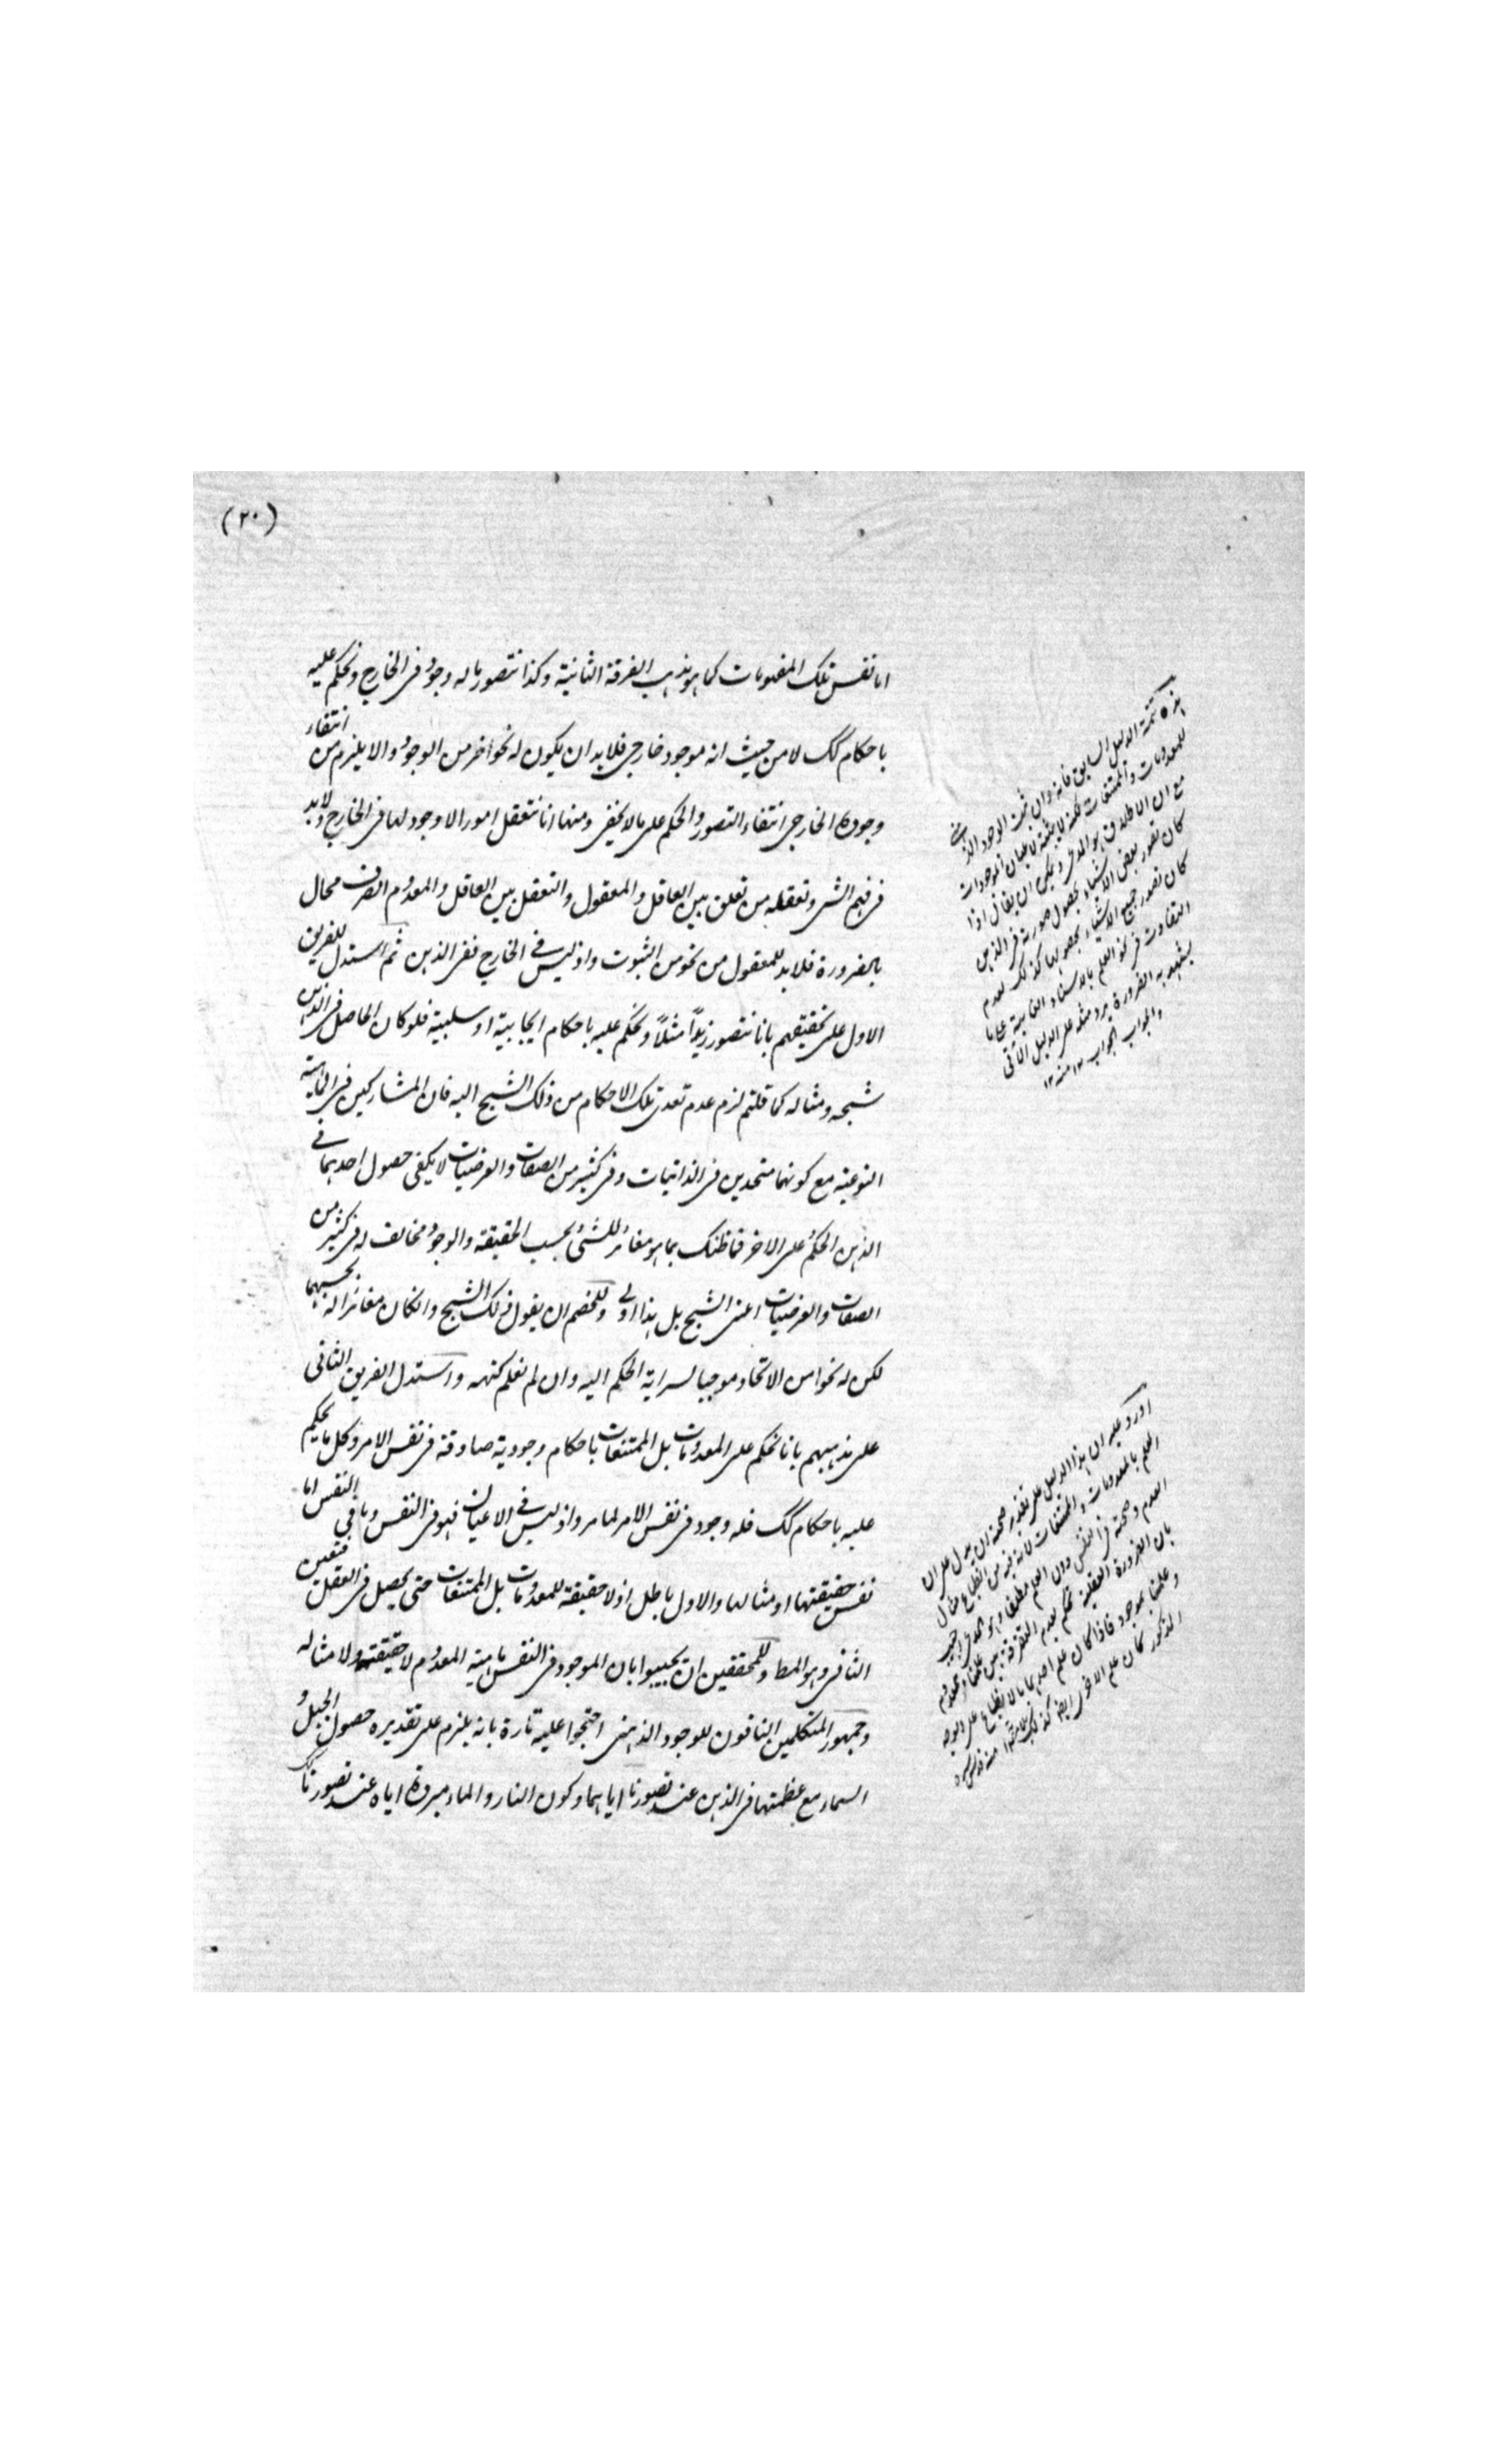 (٢٠)
اما نفس تلك المفهومات كما هو مذهب الفرقة الثانية وكذا نتصور ما له وجود فى الخارج ونحكم عليه
باحكام كك لا من حيث انه موجود خارجى فلا بد ان يكون له نحو اخر من الوجود والا يلزم من انتفاء
وجوده الخارجى انتفاء التصور والحكم على ما لا يخفى ومنها انا نتعقل امورا لا وجود لها فى الخارج ولا بد
فى فهم الشى وتعقله من تعلق بين العاقل والمعقول والتعقل بين العاقل والمعدوم الصرف محال
بالضرورة فلا بد للمعقول من نحو من الثبوت واذ ليس فى الخارج ففى الذهن ثم استدل للفريق
الاول على تحقيقهم بانا نتصور زيدًا مثلًا ونحكم عليه باحكام ايجابية او سلبية فلو كان الحاصل فى الذهن
شبحه ومثاله كما قلتم لزم عدم تعدى تلك الاحكام من ذلك الشبح اليه فان المشاركين فى الماهية
النوعية مع كونهما متحدين فى الذاتيات وفى كثير من الصفات والعرضيات لا يكفى حصول احدهما فى
الذهن الحكم على الاخر فما ظنك بما هو مغائر للشئ بحسب الحقيقة والوجود مخالف له فى كثير من
الصفات والعرضيات اعنى الشبح بل هذا اولى وللخصم ان يقول ذلك الشبح وان كان مغائرا له بحسبهما
لكن له نحوا من الاتحاد موجبا لسراية الحكم اليه وان لم نعلم كنهه واستدل الفريق الثانى
على مذهبهم بانا نحكم على المعدومات بل الممتنعات باحكام وجودية صادقة فى نفس الامر وكل ما يحكم
عليه باحكام كك فله وجود فى نفس الامر لما مر واذ ليس فى الاعيان فهو فى النفس وما فى النفس اما
نفس حقيقتها او مثالها والاول باطل اذ لا حقيقة للمعدومات بل الممتنعات حتى يحصل فى العقل فتعين
الثانى وهو المط وللمحققين ان يجيبوا بان الموجود فى النفس ماهية المعدوم لا حقيقته ولا مثاله
وجمهور المتكلمين النافون للوجود الذهنى احتجوا عليه تارة بانه يلزم على تقديره حصول الجبل و
السماء مع عظمتها فى الذهن عند تصورنا اياهما وكون النار والماء مبردة اياه عند تصورنا كك
هذه تتمة الدليل السابق فانه وان ثبت الوجود الذهنى
للمعدومات والممتنعات لكنه لا يثبته لاعيان الموجودات
مع ان الاطلاق هو المدعى ويمكن ان يقال اذا
كان تصور بعض الاشياء بحصول صورته فى الذهن
كان تصور جميع الاشياء بحصولها كذلك لعدم
التفاوت فى نحو العلم بالاشياء الغائبة عنا
يشهد به الضرورة يرد مثله على الدليل الآتى
والجواب الجواب ١٢ منه ١٢
اورد عليه ان هذا الدليل على تقدير صحته ان يدل على ان
العلم بالمعدومات والممتنعات لا بد فيه من انطباع مثال
المعدوم وصحته فى النفس دون العلم مطلقا وهو المدعى واجيب
بان الضرورة العقلية تحكم بعدم التفرقة بين علمنا بمعدوم
وعلمنا بموجود فاذا كان علم احدهما بالانطباع على الوجه
المذكور كان علم الاخر ايضا كذلك منه قدس سره